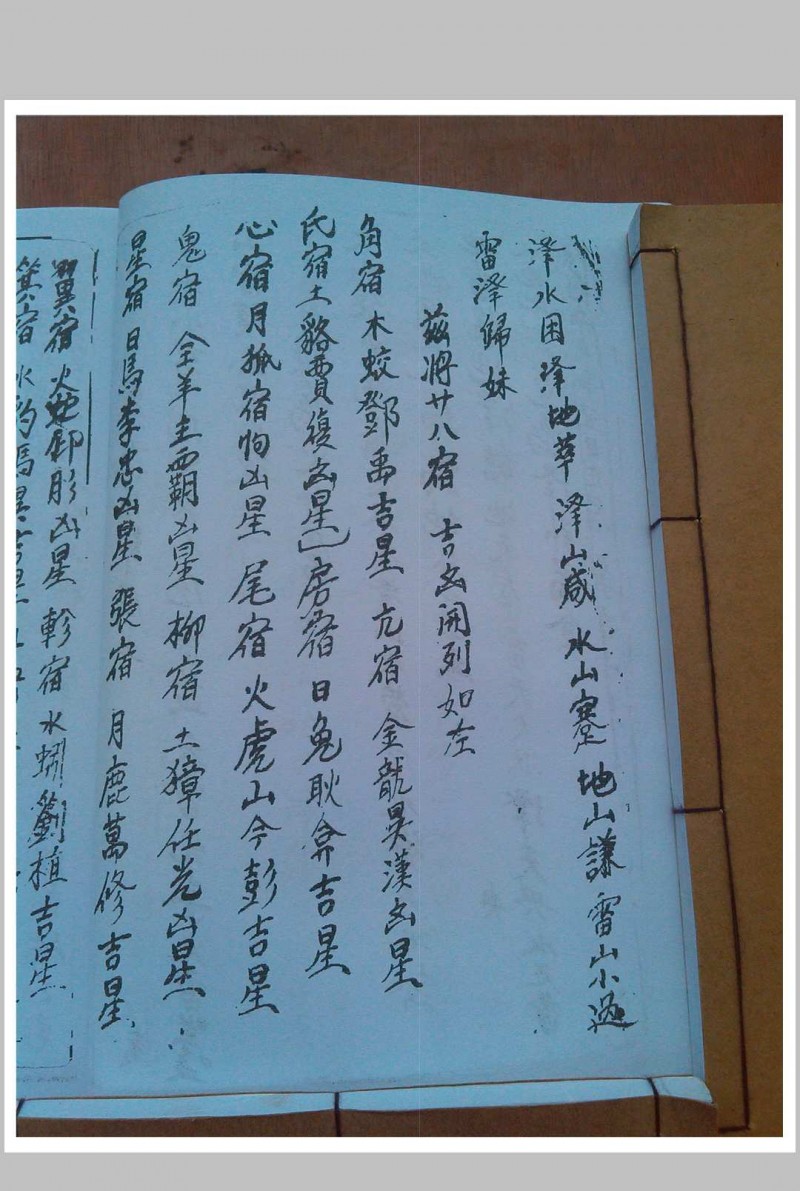 澤水困 澤地萃 澤山咸 水山蹇 地山謙 雷山小過
雷澤歸妹
茲將廿八宿 吉凶開列如左
角宿 木蛟鄧禹吉星 亢宿 金龍吴漢凶星
氐宿土貉賈復凶星 房宿 日兔耿弇吉星
心宿月狐寇恂凶星 尾宿 火虎山今彭吉星
鬼宿 金羊王霸凶星 柳宿 土獐任光凶星
星宿 日馬李忠凶星 張宿 月鹿萬修吉星
翼宿 火蛇邳彤凶星 軫宿 水蚓劉植吉星
箕宿 水豹馮異吉星